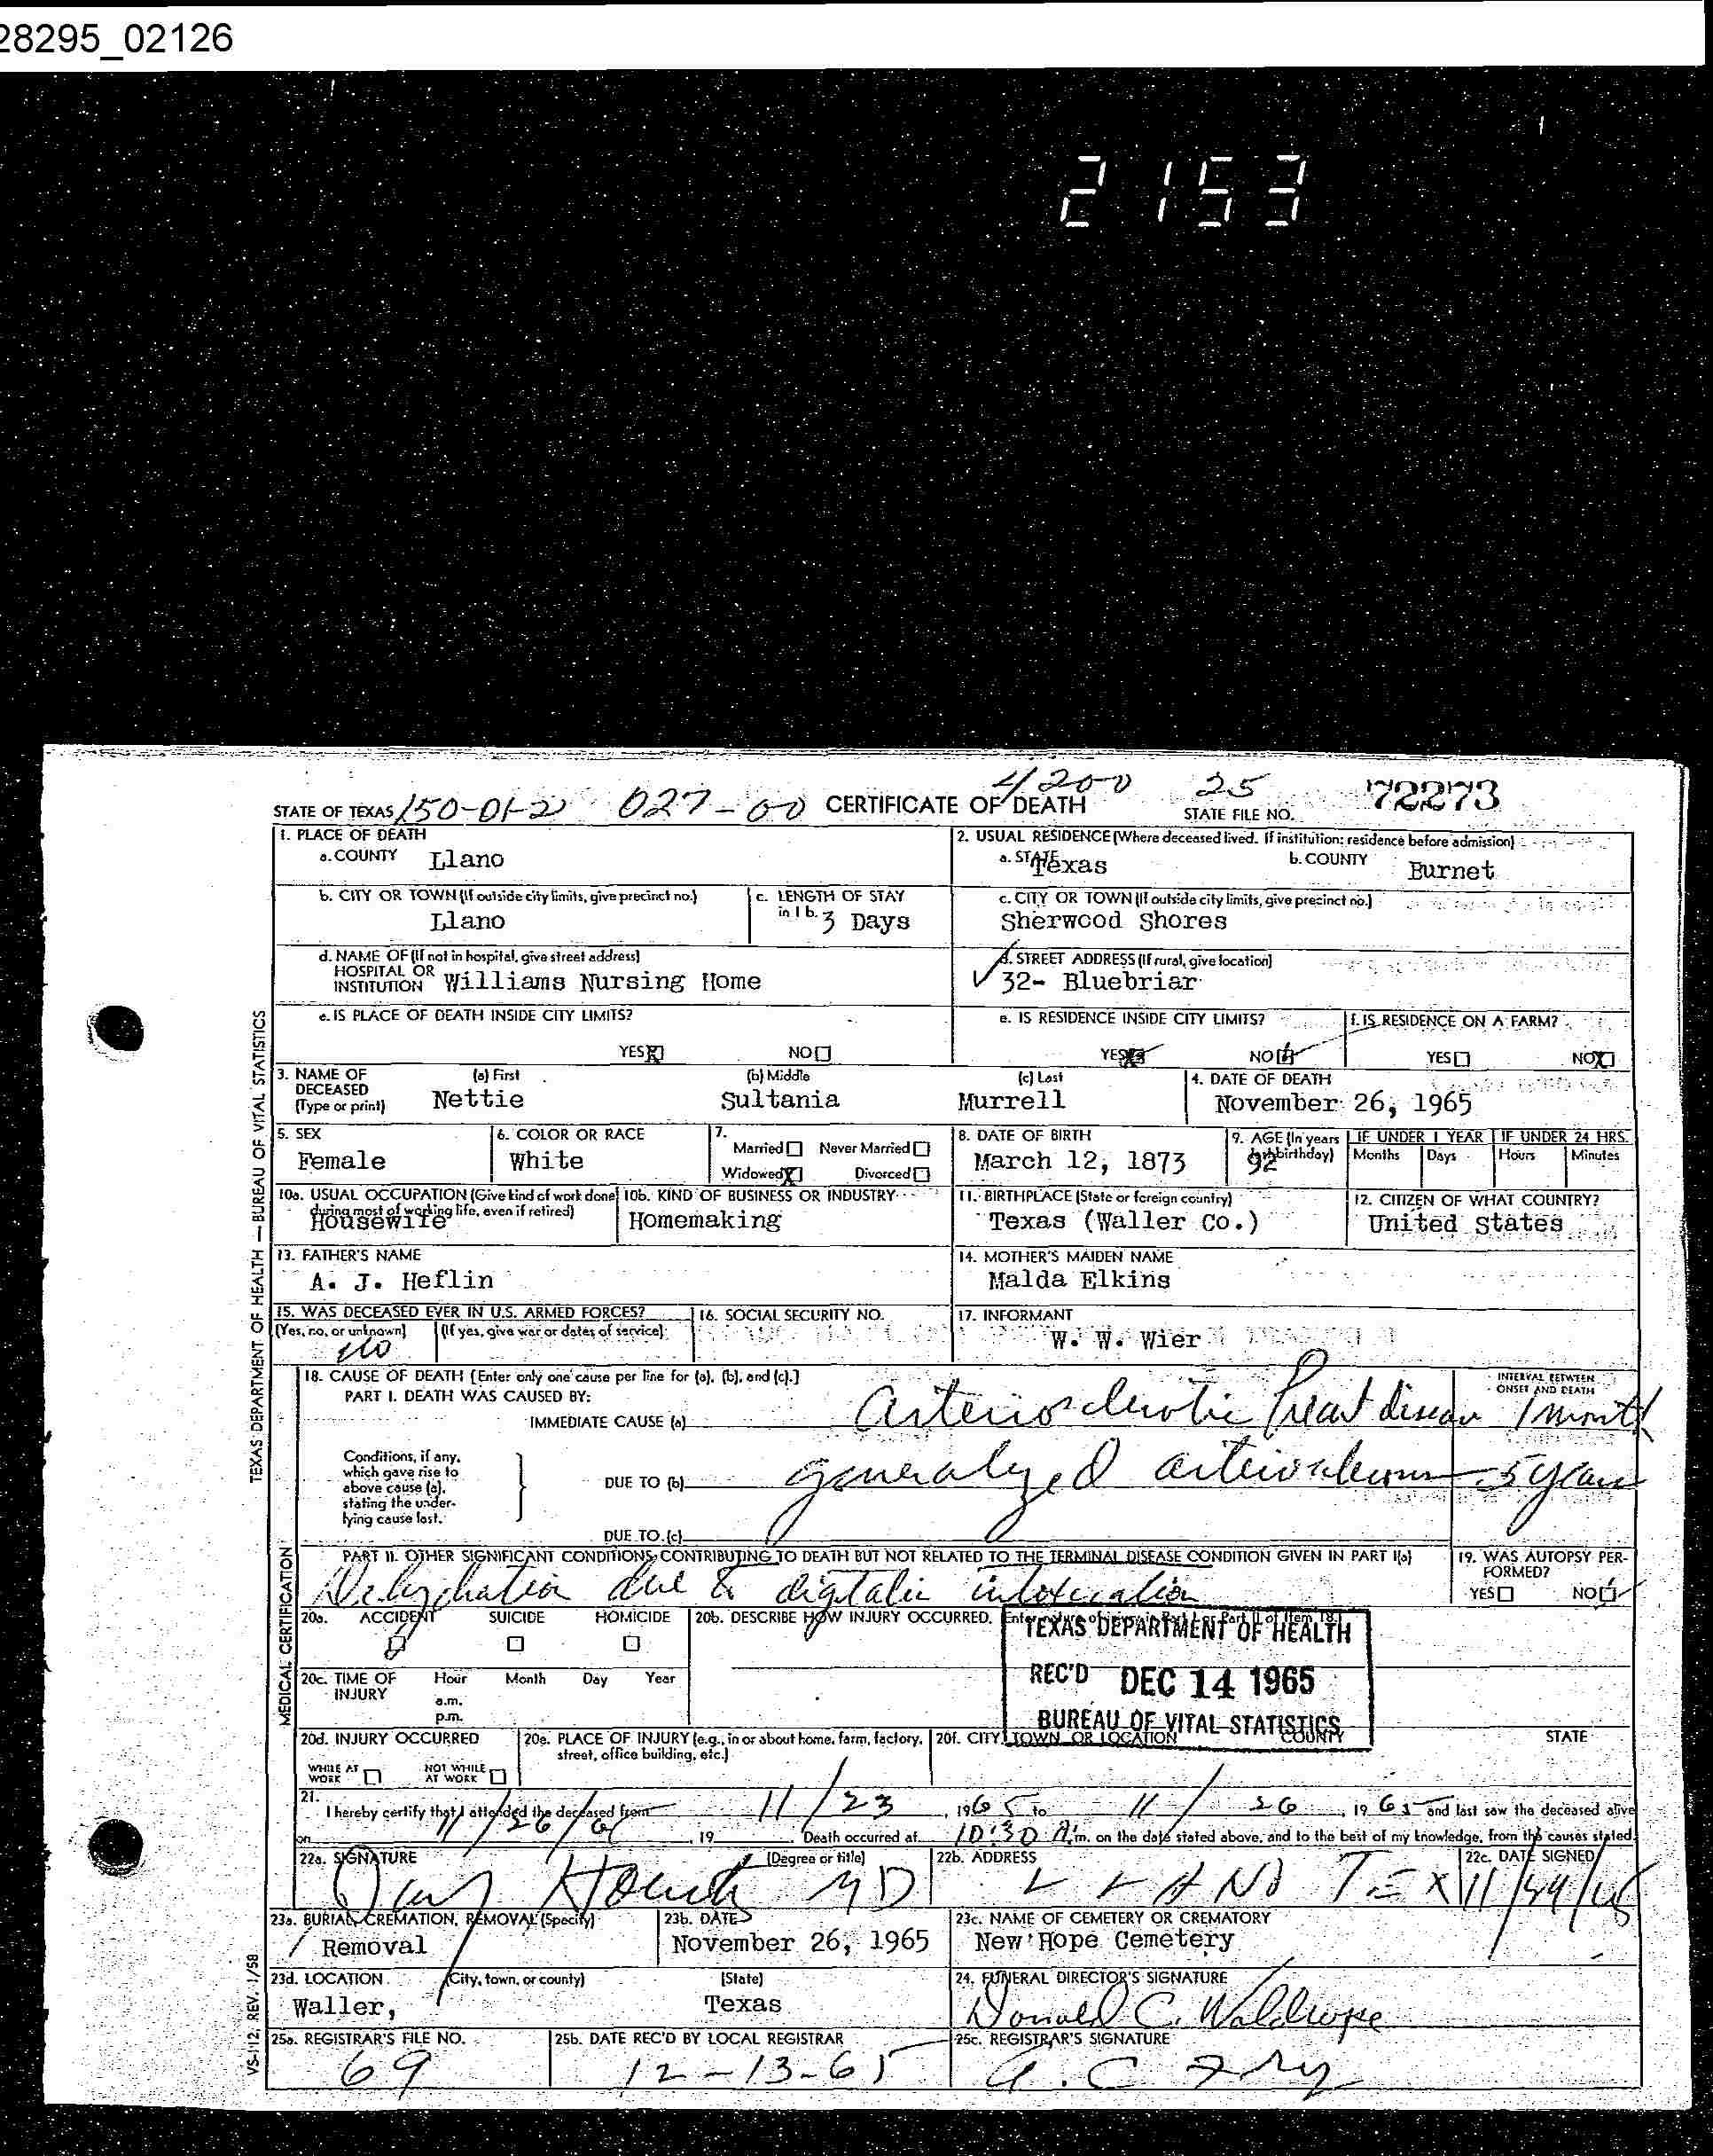 28295_02126
2153
4200 25 72273
STATE OF TEXAS 150-01-2 027-00 CERTIFICATE OF DEATH STATE FILE NO.
1. PLACE OF DEATH 2. USUAL RESIDENCE (Where deceased lived. If institution: residence before admission)
a. COUNTY Llano a. STATE Texas b. COUNTY Burnet
b. CITY OR TOWN (If outside city limits, give precinct no.) c. LENGTH OF STAY in 1 b. 3 Days c. CITY OR TOWN (If outside city limits, give precinct no.)
Llano Sherwood Shores
d. NAME OF (If not in hospital, give street address) d. STREET ADDRESS (If rural, give location)
HOSPITAL OR INSTITUTION Williams Nursing Home 32- Bluebriar
e. IS PLACE OF DEATH INSIDE CITY LIMITS? e. IS RESIDENCE INSIDE CITY LIMITS? f. IS RESIDENCE ON A FARM?
YES X NO YES NO YES NO X
3. NAME OF DECEASED (Type or print) (a) First (b) Middle (c) Last 4. DATE OF DEATH
Nettie Sultania Murrell November 26, 1965
5. SEX 6. COLOR OR RACE 7. Married Never Married 8. DATE OF BIRTH 9. AGE (In years last birthday) IF UNDER 1 YEAR IF UNDER 24 HRS.
Female White Widowed X Divorced March 12, 1873 92 Months Days Hours Minutes
10a. USUAL OCCUPATION (Give kind of work done during most of working life, even if retired) 10b. KIND OF BUSINESS OR INDUSTRY 11. BIRTHPLACE (State or foreign country) 12. CITIZEN OF WHAT COUNTRY?
Housewife Homemaking Texas (Waller Co.) United States
13. FATHER'S NAME 14. MOTHER'S MAIDEN NAME
A. J. Heflin Malda Elkins
15. WAS DECEASED EVER IN U.S. ARMED FORCES? 16. SOCIAL SECURITY NO. 17. INFORMANT
(Yes, no, or unknown) (If yes, give war or dates of service)
no W. W. Wier
18. CAUSE OF DEATH [Enter only one cause per line for (a), (b), and (c).] INTERVAL BETWEEN ONSET AND DEATH
PART I. DEATH WAS CAUSED BY:
IMMEDIATE CAUSE (a) Arteriosclerotic heart disease 1 month
Conditions, if any, which gave rise to above cause (a), stating the underlying cause last.
DUE TO (b) generalyzed arteriosclerosis 5 years
DUE TO (c)
PART II. OTHER SIGNIFICANT CONDITIONS CONTRIBUTING TO DEATH BUT NOT RELATED TO THE TERMINAL DISEASE CONDITION GIVEN IN PART I(a) 19. WAS AUTOPSY PERFORMED?
Dehydration due to digitalis intoxication YES NO
20a. ACCIDENT SUICIDE HOMICIDE 20b. DESCRIBE HOW INJURY OCCURRED. (Enter nature of injury in Part I or Part II of Item 18.)
TEXAS DEPARTMENT OF HEALTH
REC'D DEC 14 1965
BUREAU OF VITAL STATISTICS
20c. TIME OF INJURY Hour Month Day Year
a.m.
p.m.
20d. INJURY OCCURRED 20e. PLACE OF INJURY (e.g., in or about home, farm, factory, street, office building, etc.) 20f. CITY, TOWN OR LOCATION COUNTY STATE
WHILE AT WORK NOT WHILE AT WORK
21. I hereby certify that I attended the deceased from 11/23, 1965 to 11/26, 1965 and last saw the deceased alive
on 11/26/65, 19 . Death occurred at 10:30 A.m. on the date stated above, and to the best of my knowledge, from the causes stated.
22a. SIGNATURE (Degree or title) 22b. ADDRESS 22c. DATE SIGNED
MD LLANO TEX
23a. BURIAL, CREMATION, REMOVAL (Specify) 23b. DATE 23c. NAME OF CEMETERY OR CREMATORY
Removal November 26, 1965 New Hope Cemetery
23d. LOCATION (City, town, or county) (State) 24. FUNERAL DIRECTOR'S SIGNATURE
Waller, Texas Donald C. Waldrope
25a. REGISTRAR'S FILE NO. 25b. DATE REC'D BY LOCAL REGISTRAR 25c. REGISTRAR'S SIGNATURE
69 12-13-65 A. C. Fry
TEXAS DEPARTMENT OF HEALTH — BUREAU OF VITAL STATISTICS
MEDICAL CERTIFICATION
VS-112, REV. 1/58